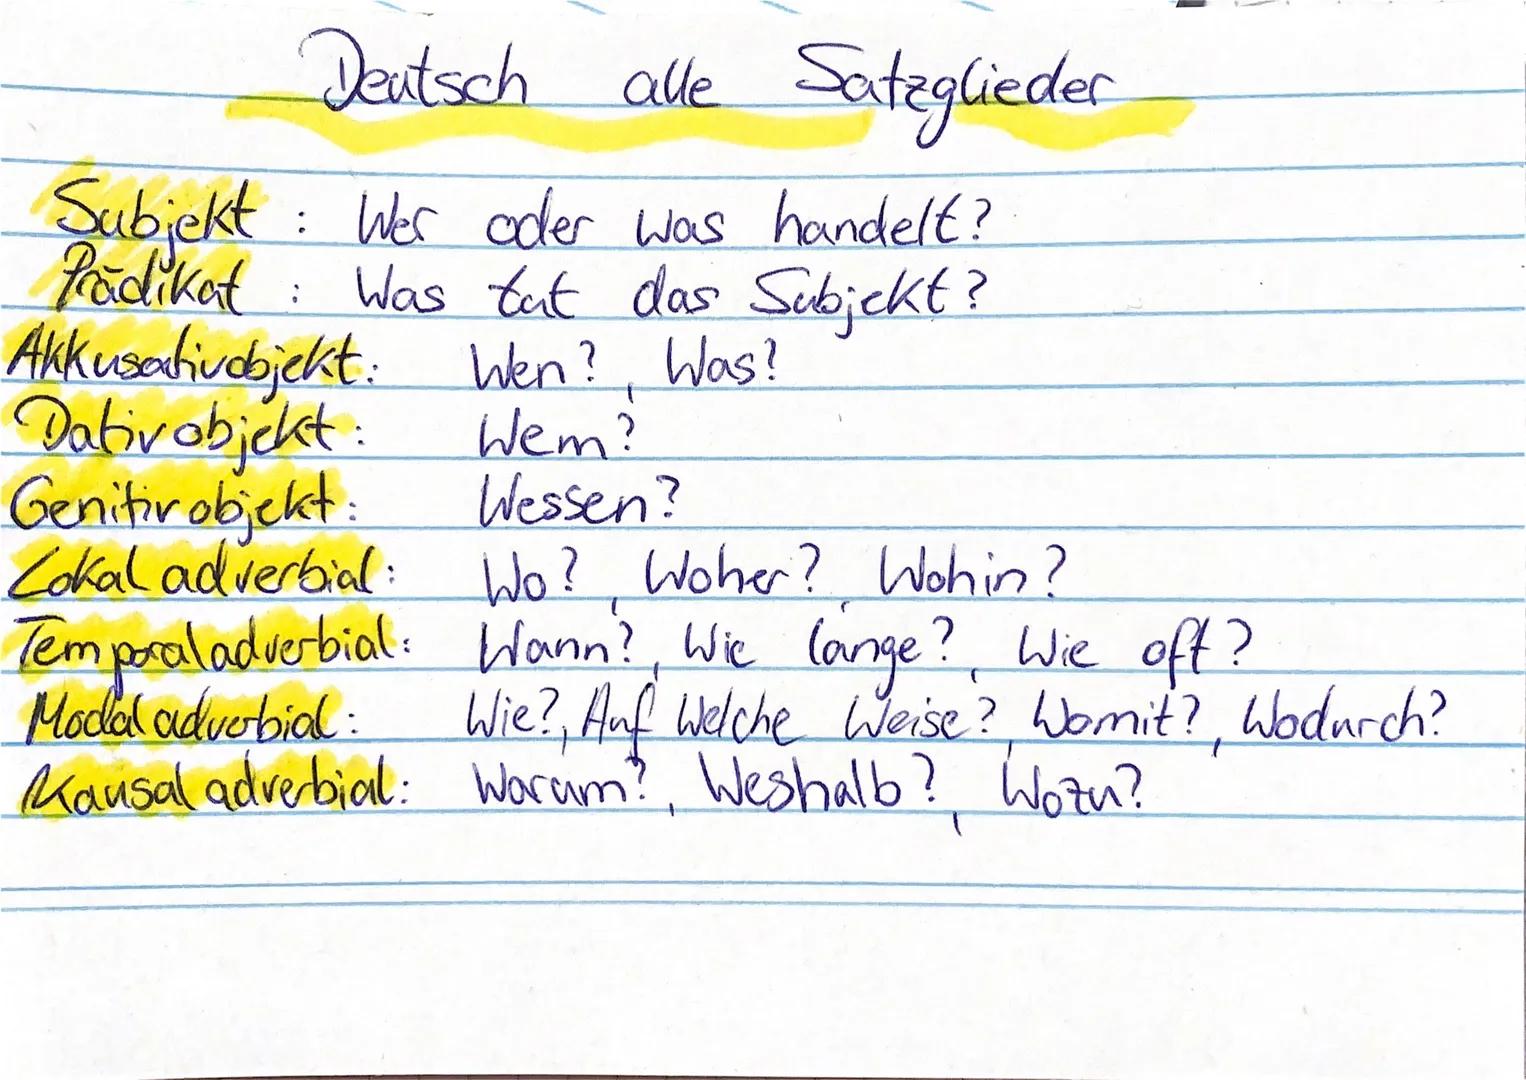 Deutsch alle Satzglieder
Subjekt : Wer oder was handelt?
Prädikat : Was tut das Subjekt?
Akkusativobjekt: Wen?, Was?
Dativobjekt: Wem?
Genitivobjekt: Wessen?
Lokaladverbial: Wo?, Woher?, Wohin?
Temporaladverbial: Wann?, Wie lange?, Wie oft?
Modaladverbial: Wie?, Auf Welche Weise?, Womit?, Wodurch?
Kausaladverbial: Warum?, Weshalb?, Wozu?